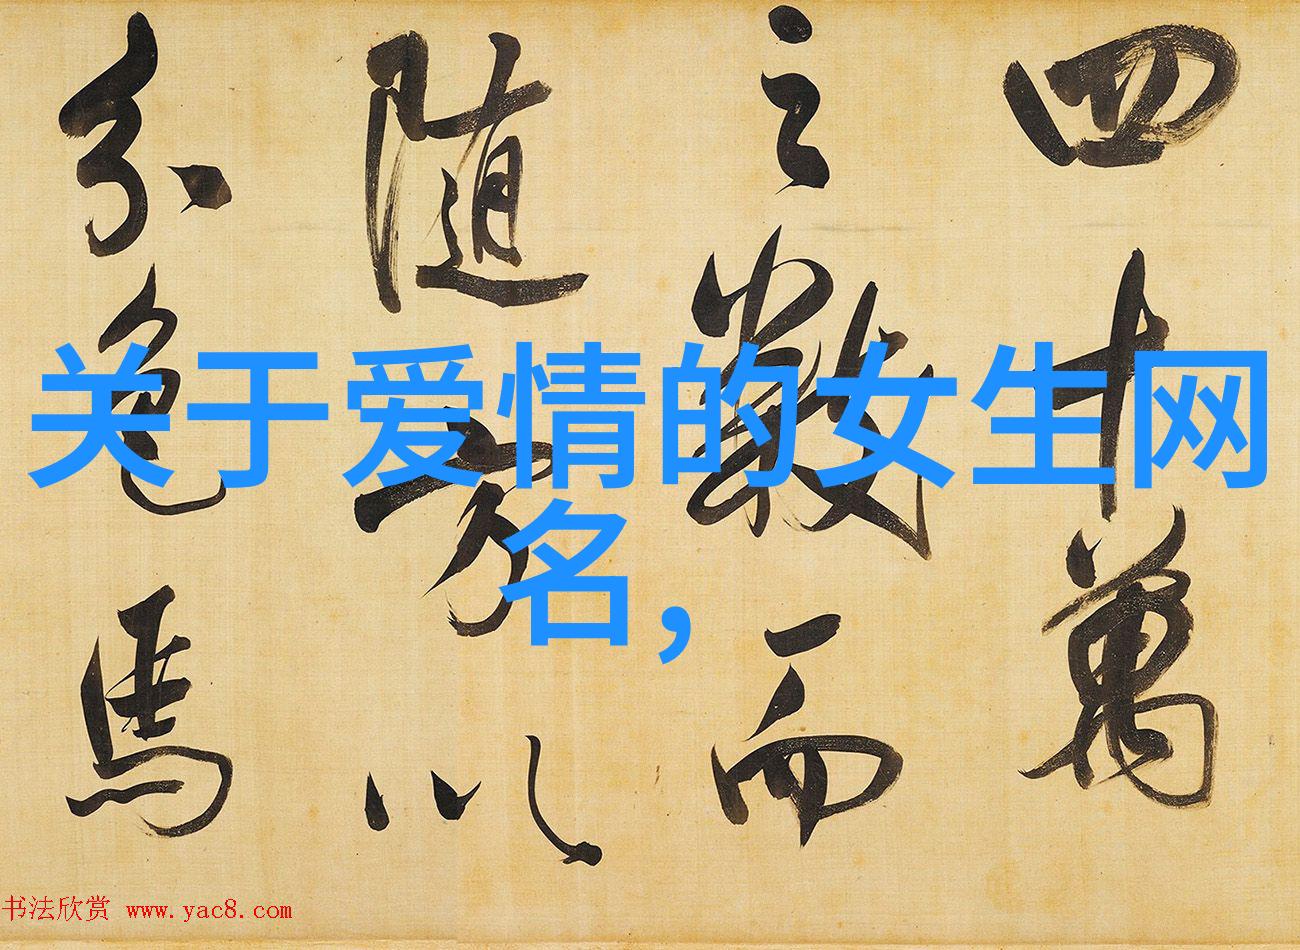 四十萬
之數而
隨方以
分色馬
关于爱情的女生网
名，
书法欣赏 www.yac8.com